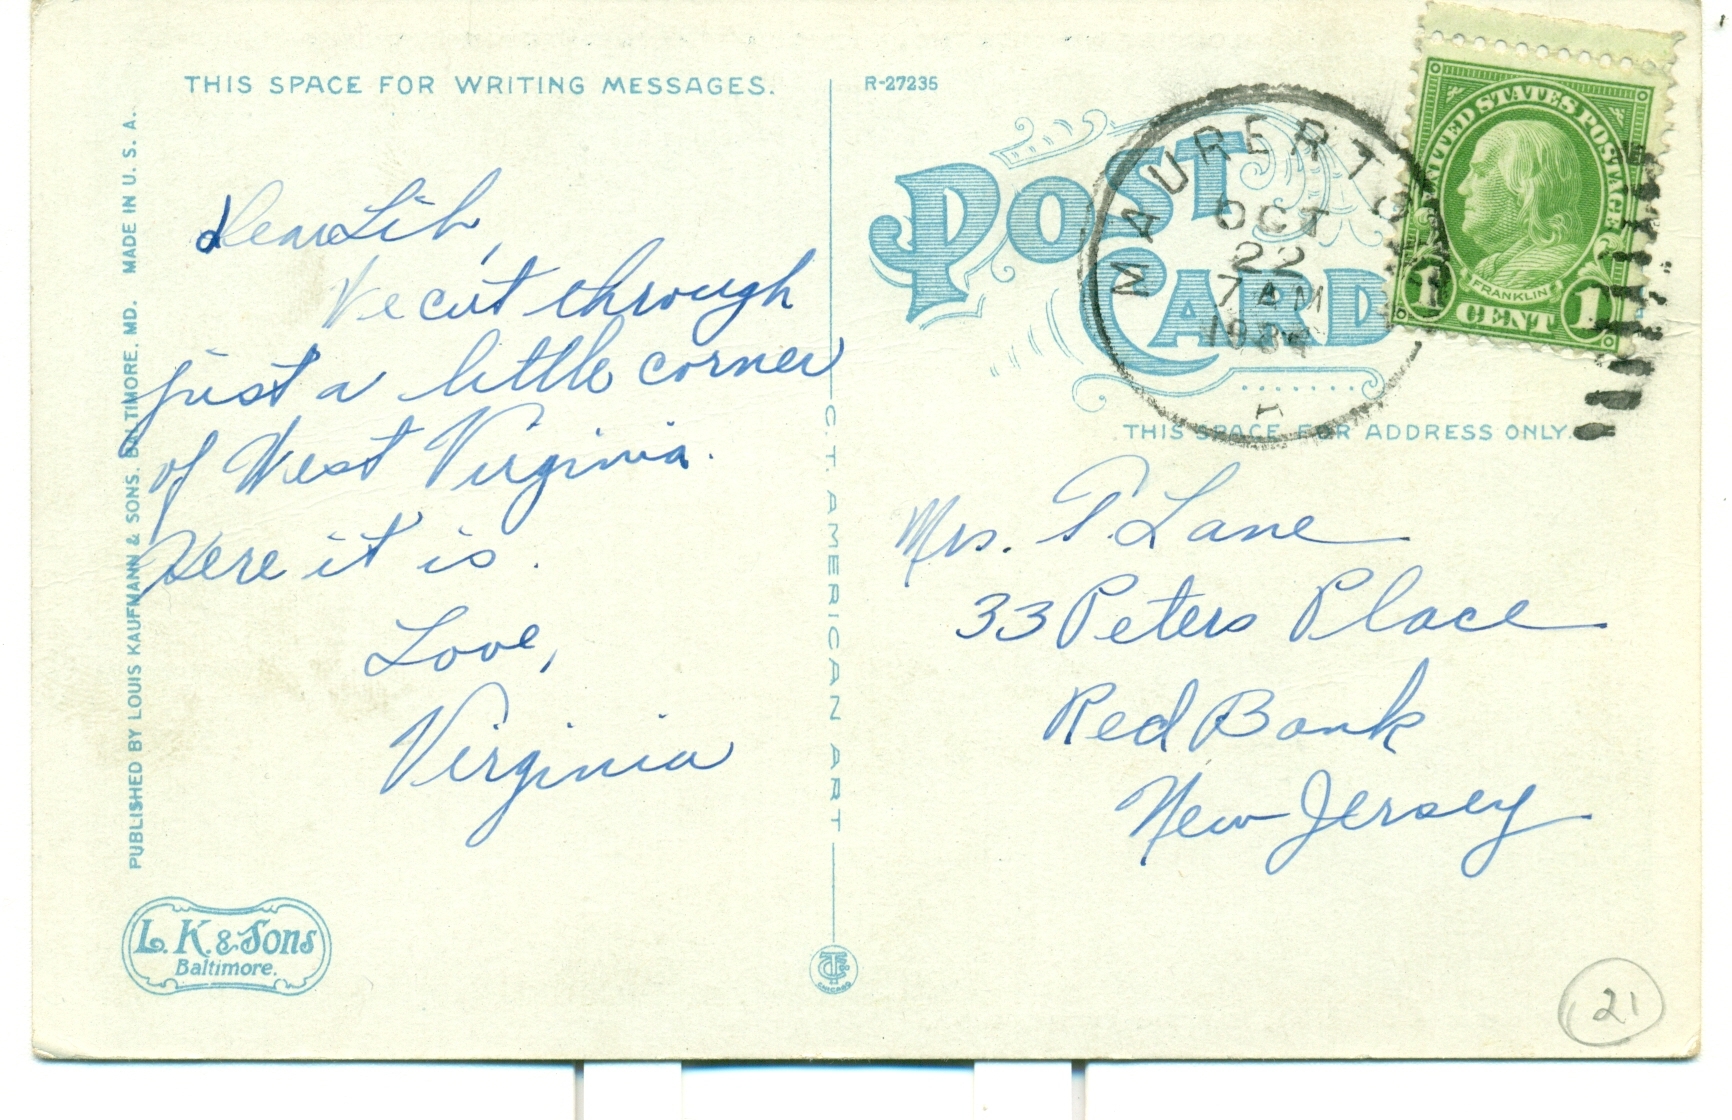 THIS SPACE FOR WRITING MESSAGES.
Dear Lib,
We cut through
just a little corner
of West Virginia.
Here it is.
Love,
Virginia
PUBLISHED BY LOUIS KAUFMANN & SONS. BALTIMORE. MD. MADE IN U. S. A.
L. K. & Sons
Baltimore.
C. T. AMERICAN ART
CHICAGO
R-27235
POST
CARD
MAURERT
OCT
22
7 AM
UNITED STATES POSTAGE
FRANKLIN
1 CENT 1
THIS SPACE FOR ADDRESS ONLY.
Mrs. P. Lane
33 Peters Place
Red Bank
New Jersey
21